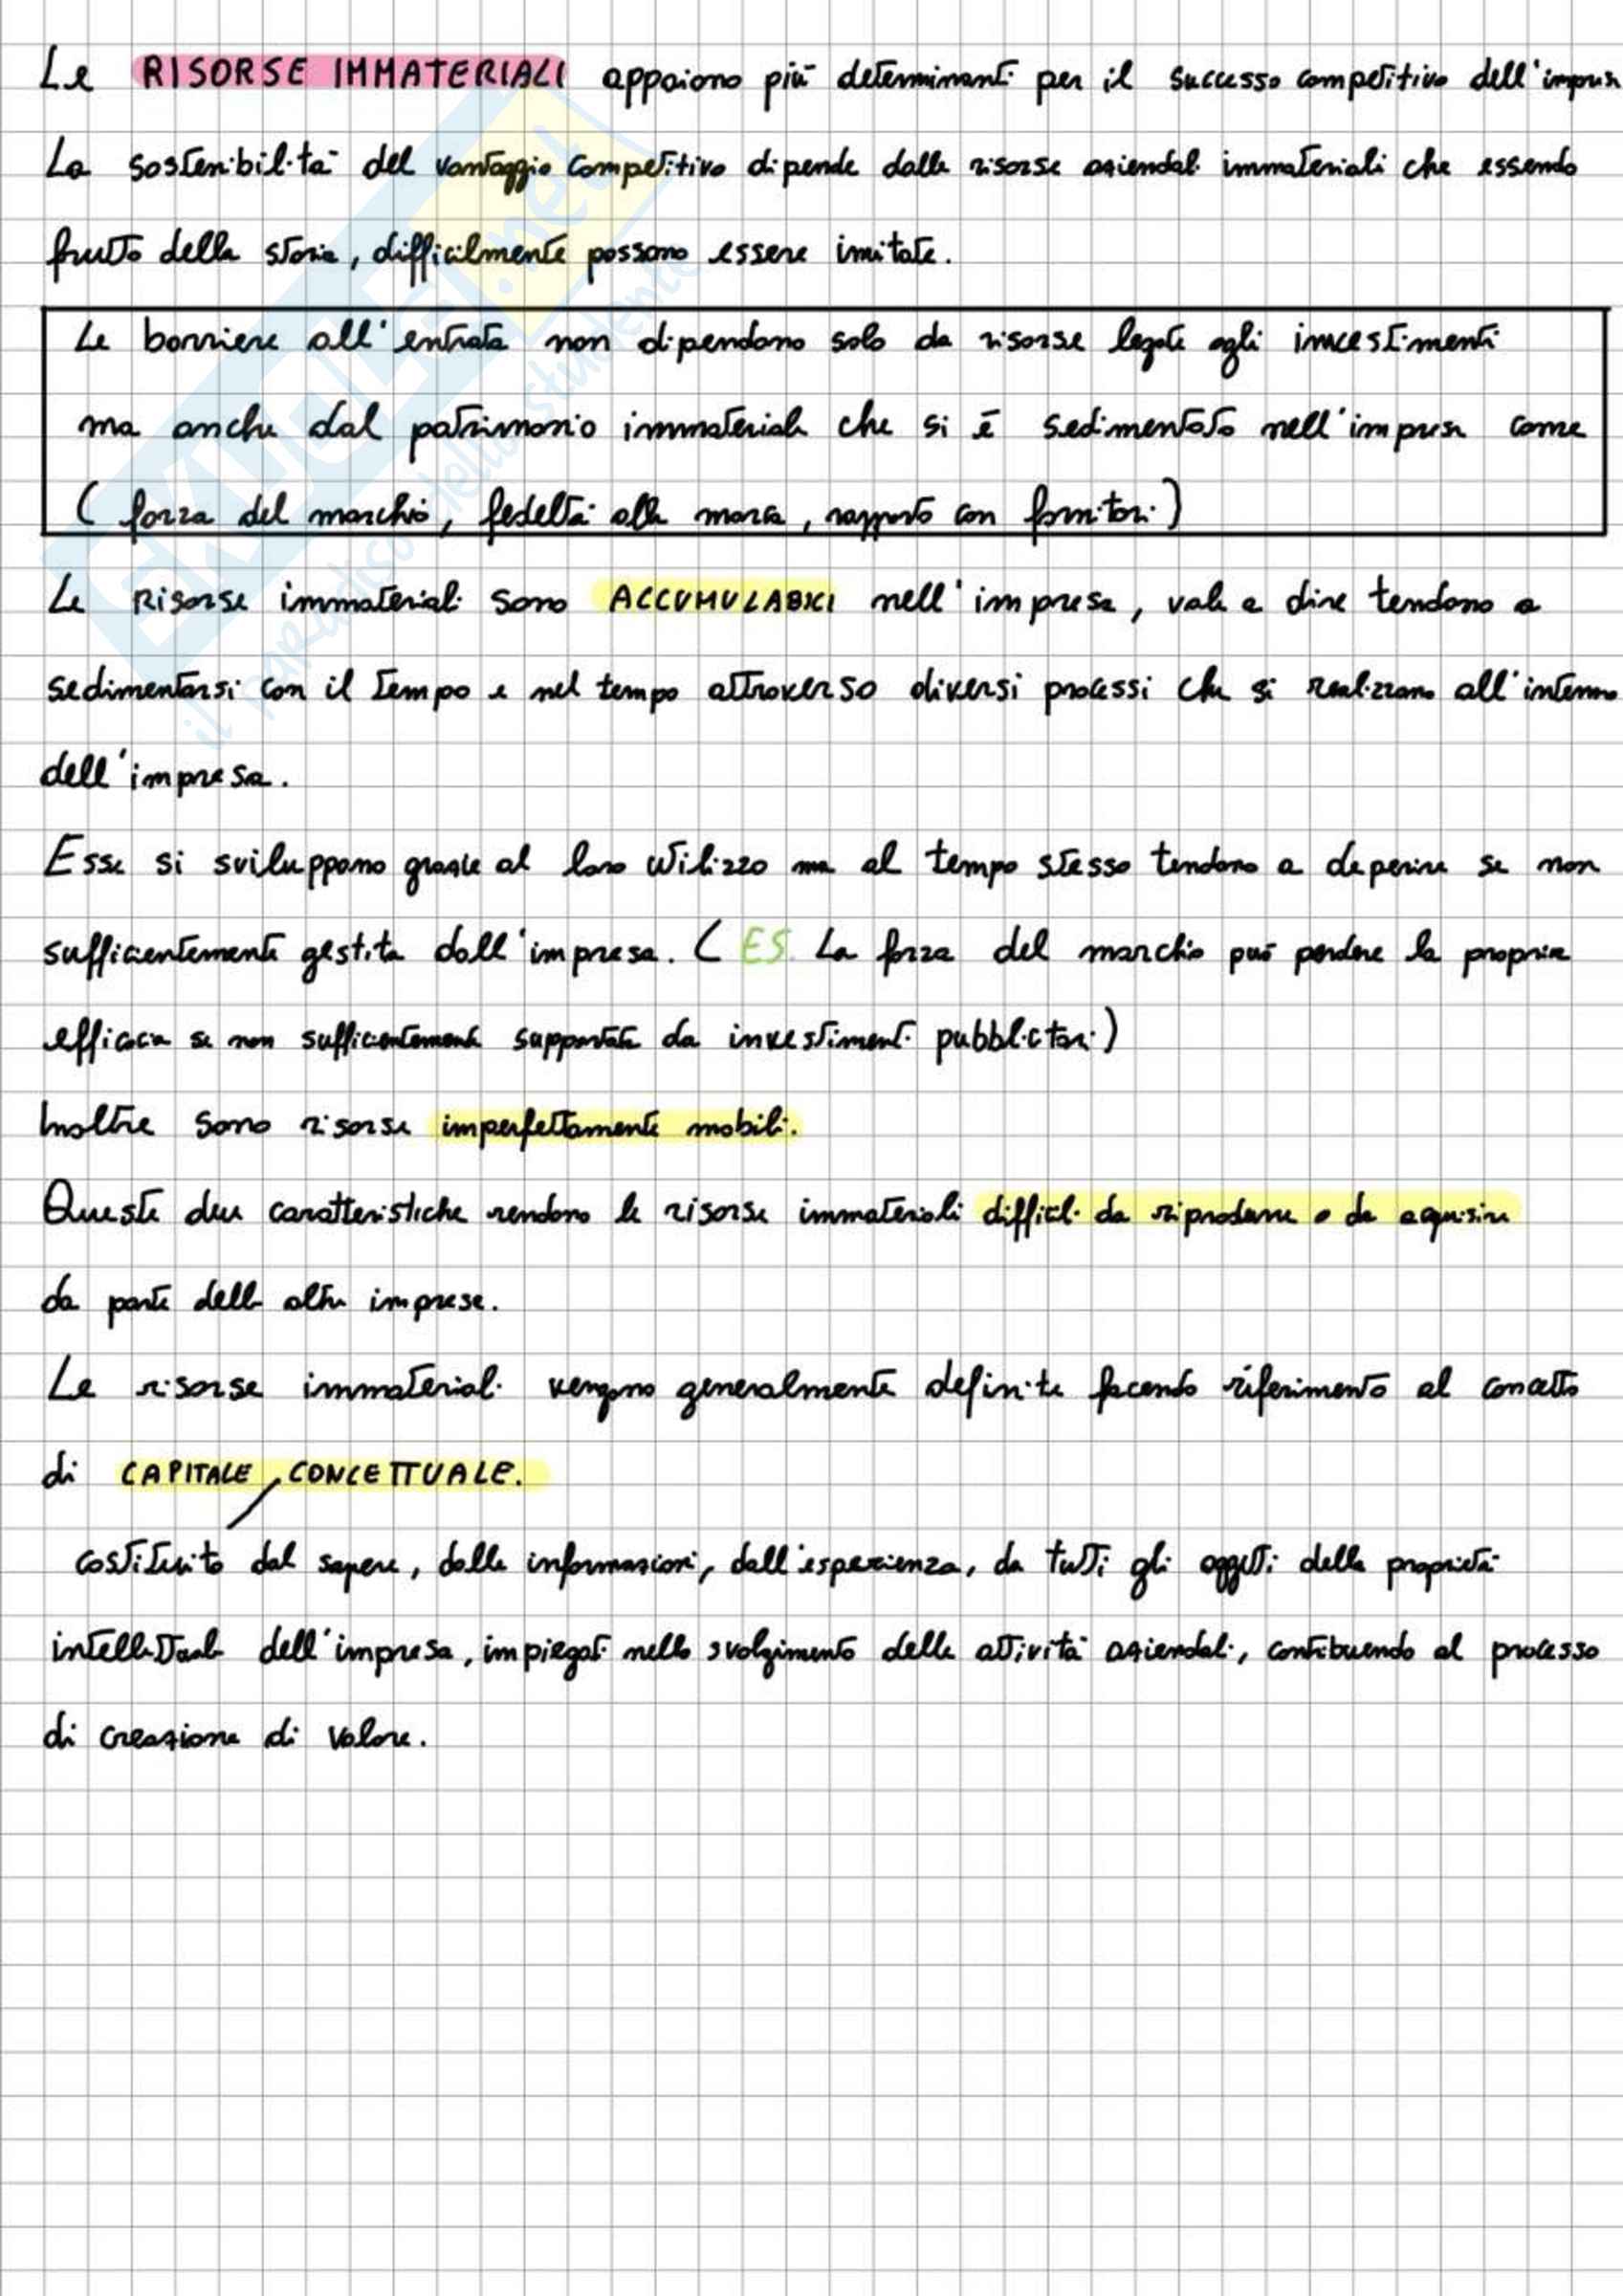 Le RISORSE IMMATERIALI appaiono più determinanti per il successo competitivo dell'impresa
La sostenibilità del vantaggio competitivo dipende dalle risorse aziendali immateriali che essendo
frutto della storia, difficilmente possono essere imitate.
Le barriere all'entrata non dipendono solo da risorse legate agli investimenti
ma anche dal patrimonio immateriale che si è sedimentato nell'impresa come
( forza del marchio, fedeltà alla marca, rapporto con fornitori )
Le Risorse immateriali sono ACCUMULABILI nell'impresa, vale a dire tendono a
sedimentarsi con il tempo e nel tempo attraverso diversi processi che si realizzano all'interno
dell'impresa.
Esse si sviluppano grazie al loro utilizzo ma al tempo stesso tendono a deperire se non
sufficientemente gestita dall'impresa. ( ES. La forza del marchio può perdere la propria
efficacia se non sufficientemente supportata da investimenti pubblicitari )
Inoltre sono risorse imperfettamente mobili.
Queste due caratteristiche rendono le risorse immateriali difficili da riprodurre o da acquisire
da parte delle altre imprese.
Le risorse immateriali vengono generalmente definite facendo riferimento al concetto
di CAPITALE CONCETTUALE.
costituito dal sapere, dalle informazioni, dall'esperienza, da tutti gli oggetti della proprietà
intellettuale dell'impresa, impiegati nello svolgimento delle attività aziendali, contribuendo al processo
di creazione di valore.
SKUOLA.net
il paradiso dello studente